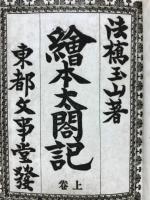 法橋玉山著
繪本太閤記
上卷
東都文事堂發